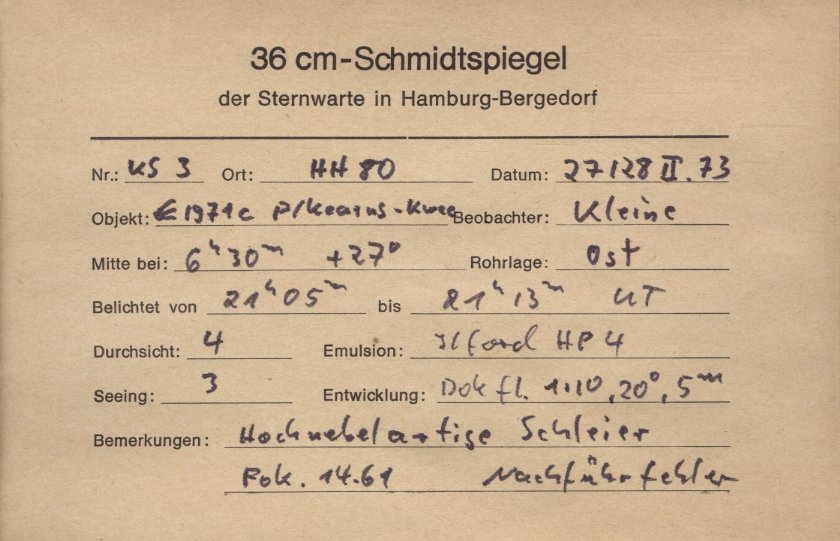 36 cm-Schmidtspiegel
der Sternwarte in Hamburg-Bergedorf
Nr.: KS 3 Ort: HH 80 Datum: 27/28 II. 73
Objekt: 1971c P/Kearns-Kwee Beobachter: Kleine
Mitte bei: 6ʰ30ᵐ +27° Rohrlage: Ost
Belichtet von 21ʰ05ᵐ bis 21ʰ13ᵐ UT
Durchsicht: 4 Emulsion: Ilford HP4
Seeing: 3 Entwicklung: Dokfl. 1:10, 20°, 5ᵐ
Bemerkungen: Hochnebelartige Schleier
Fok. 14.61 Nachführfehler